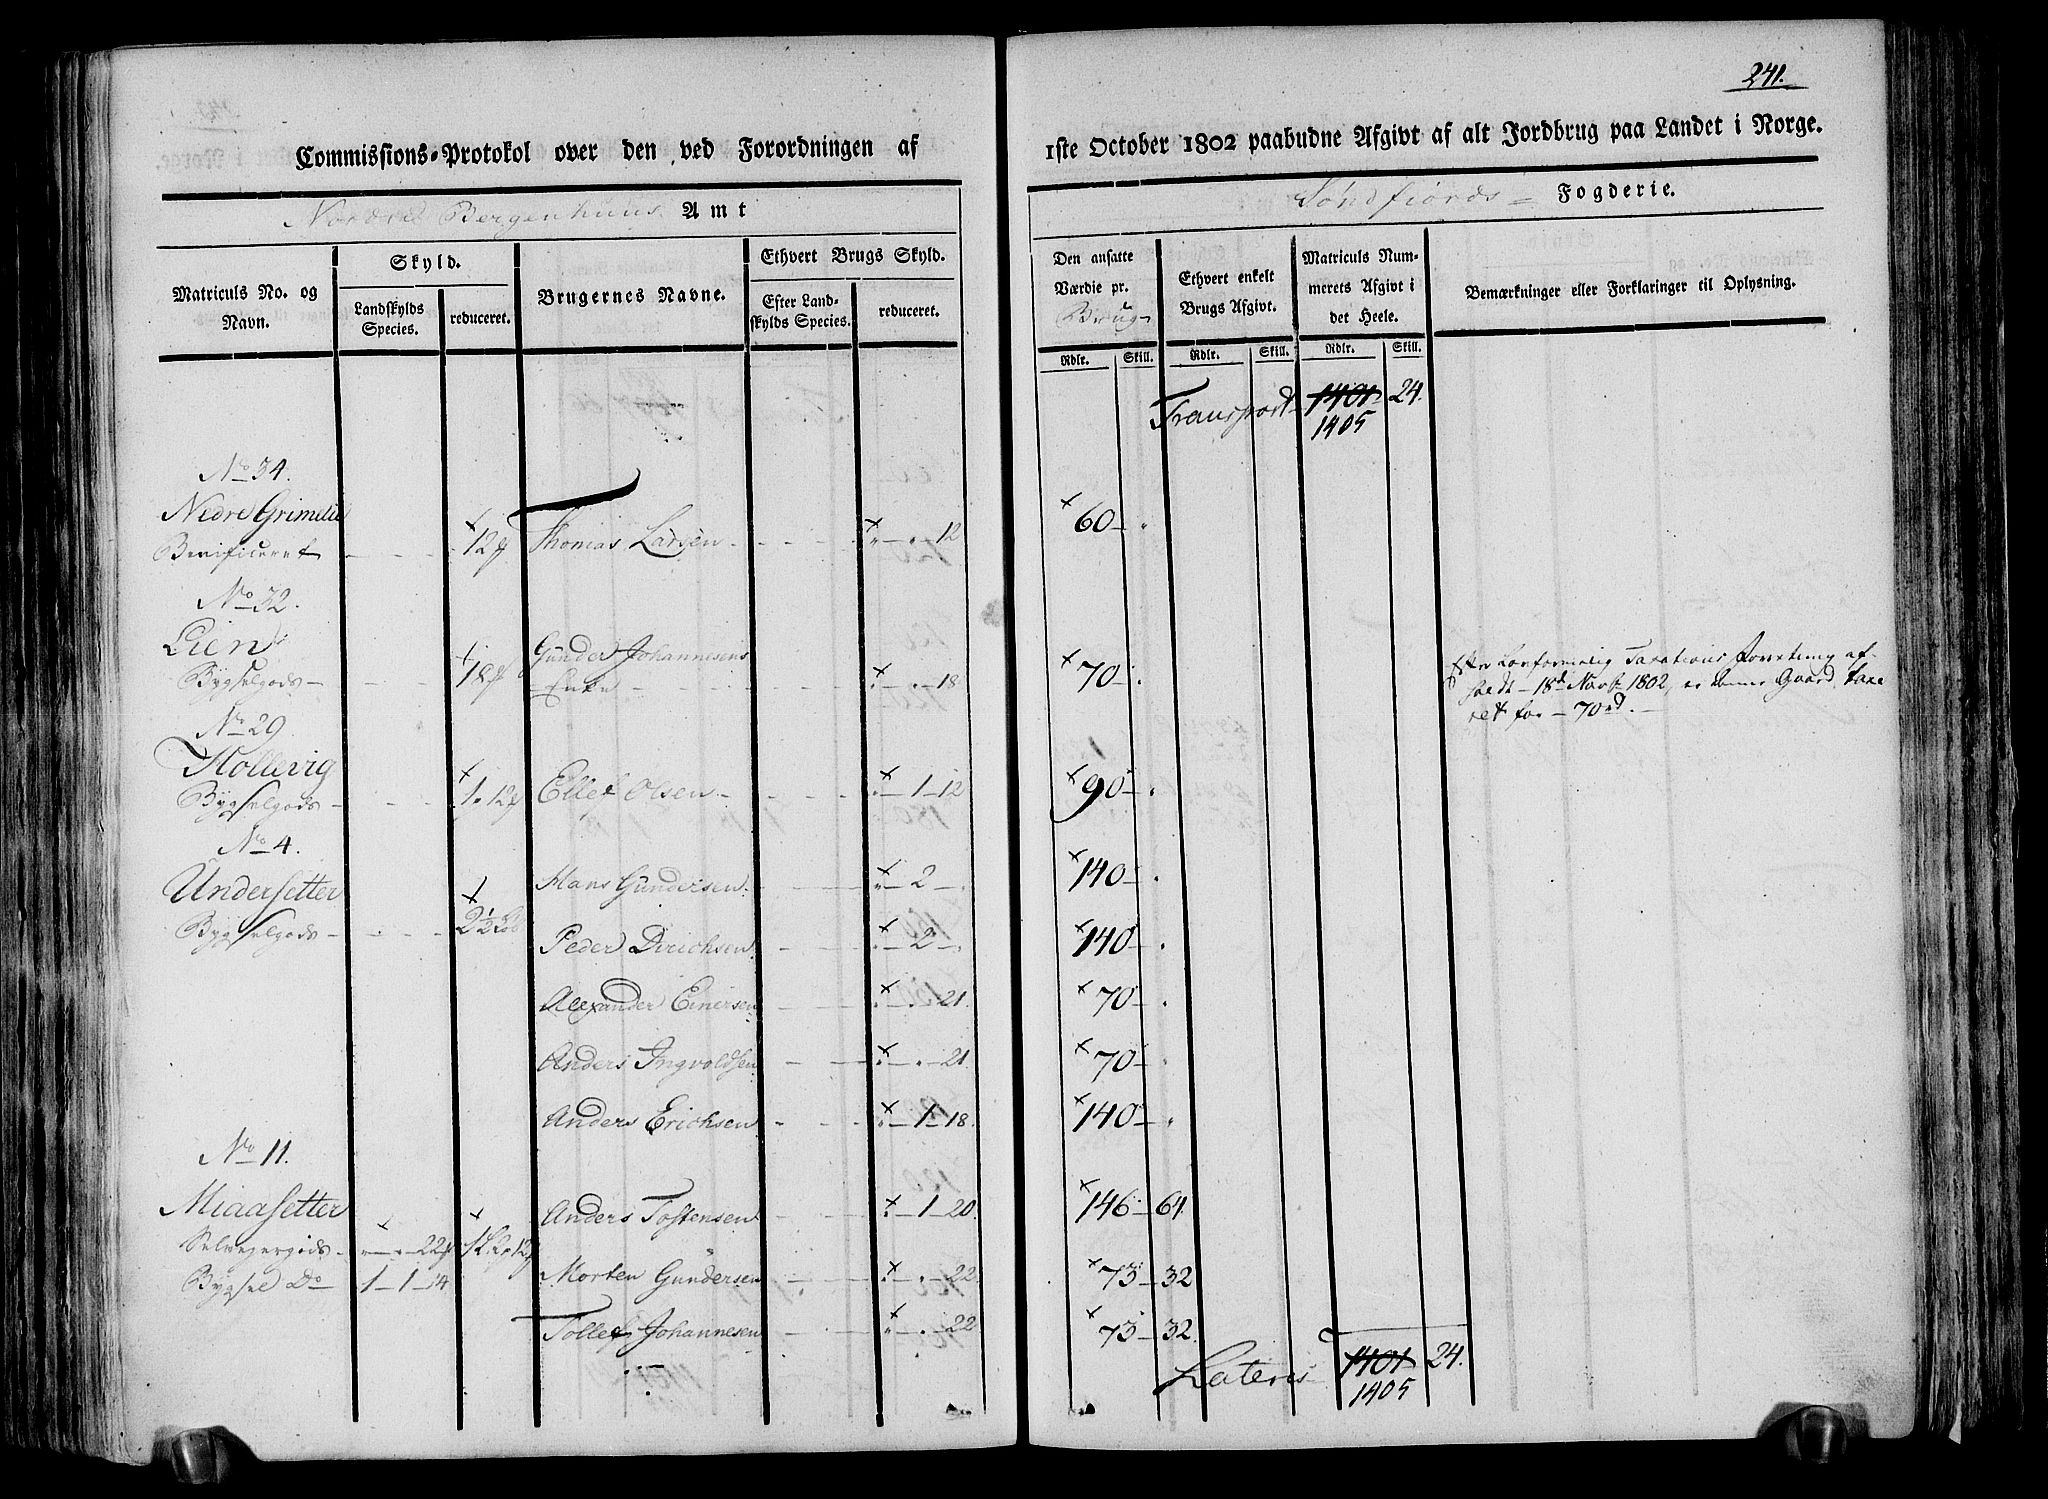 241.
Commissions-Protokol over den ved Forordningen af
1ste October 1802 paabudne Afgivt af alt Jordbrug paa Landet i Norge.
Nordre Bergenhuus Amt
Søndfiords Fogderie.
Matriculs No. og Navn.
Skyld.
Landskylds Species.
reduceret.
Brugernes Navne.
Ethvert Brugs Skyld.
Efter Landskylds Species.
reduceret.
Den ansatte Værdie pr. Brug
Ethvert enkelt Brugs Afgivt.
Matriculs Nummerets Afgivt i det Heele.
Bemærkninger eller Forklaringer til Oplysning.
Rdlr. Skill. Rdlr. Skill. Rdlr. Skill.
Transport 1401 24.
1405
No 34.
Nedre Grimelie
Benificeret 12 Thomas Larsen 12 60
No 32.
Lien
Bygselgods 18 Gunder Johannesens Enke 18 70
Efter Lovformelig Taxations Forretning af-
holdt 18de Novbr 1802, er denne Gaard taxe
ret for 70rd.
No 29.
Hollevig
Bygselgods 1. 12 Ellef Olsen 1 12 90
No 4.
Undersetter Hans Gundersen 2 140
Bygselgods 2½ Peder Dirichsen 2 140
Alexander Einersen 21. 70
Anders Ingvoldsen 21. 70
Anders Erichsen 1 18. 140
No 11.
Miaasetter Anders Tostensen 1 20. 146 64
Selveyergods 22 1 2 12 Morten Gundersen 22. 73 32
Bygsel Do 1 1 14 Tollef Johannesen 22 73 32.
Lateris 1401 24.
1405